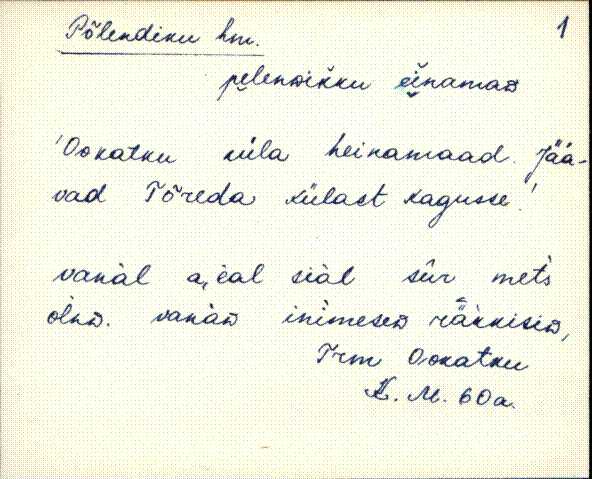 Põlendiku hm. 1
pe̮lenᴅikku ei̮namaᴅ
'Ookatku küla heinamaad. Jää-
vad Tõreda külast kagusse.'
vanàl a, èal siàl sūr mets
òlnᴅ. vanàᴅ inìmeseᴅ räkkisiᴅ,
Trm Ookatku
K. M. 60a.